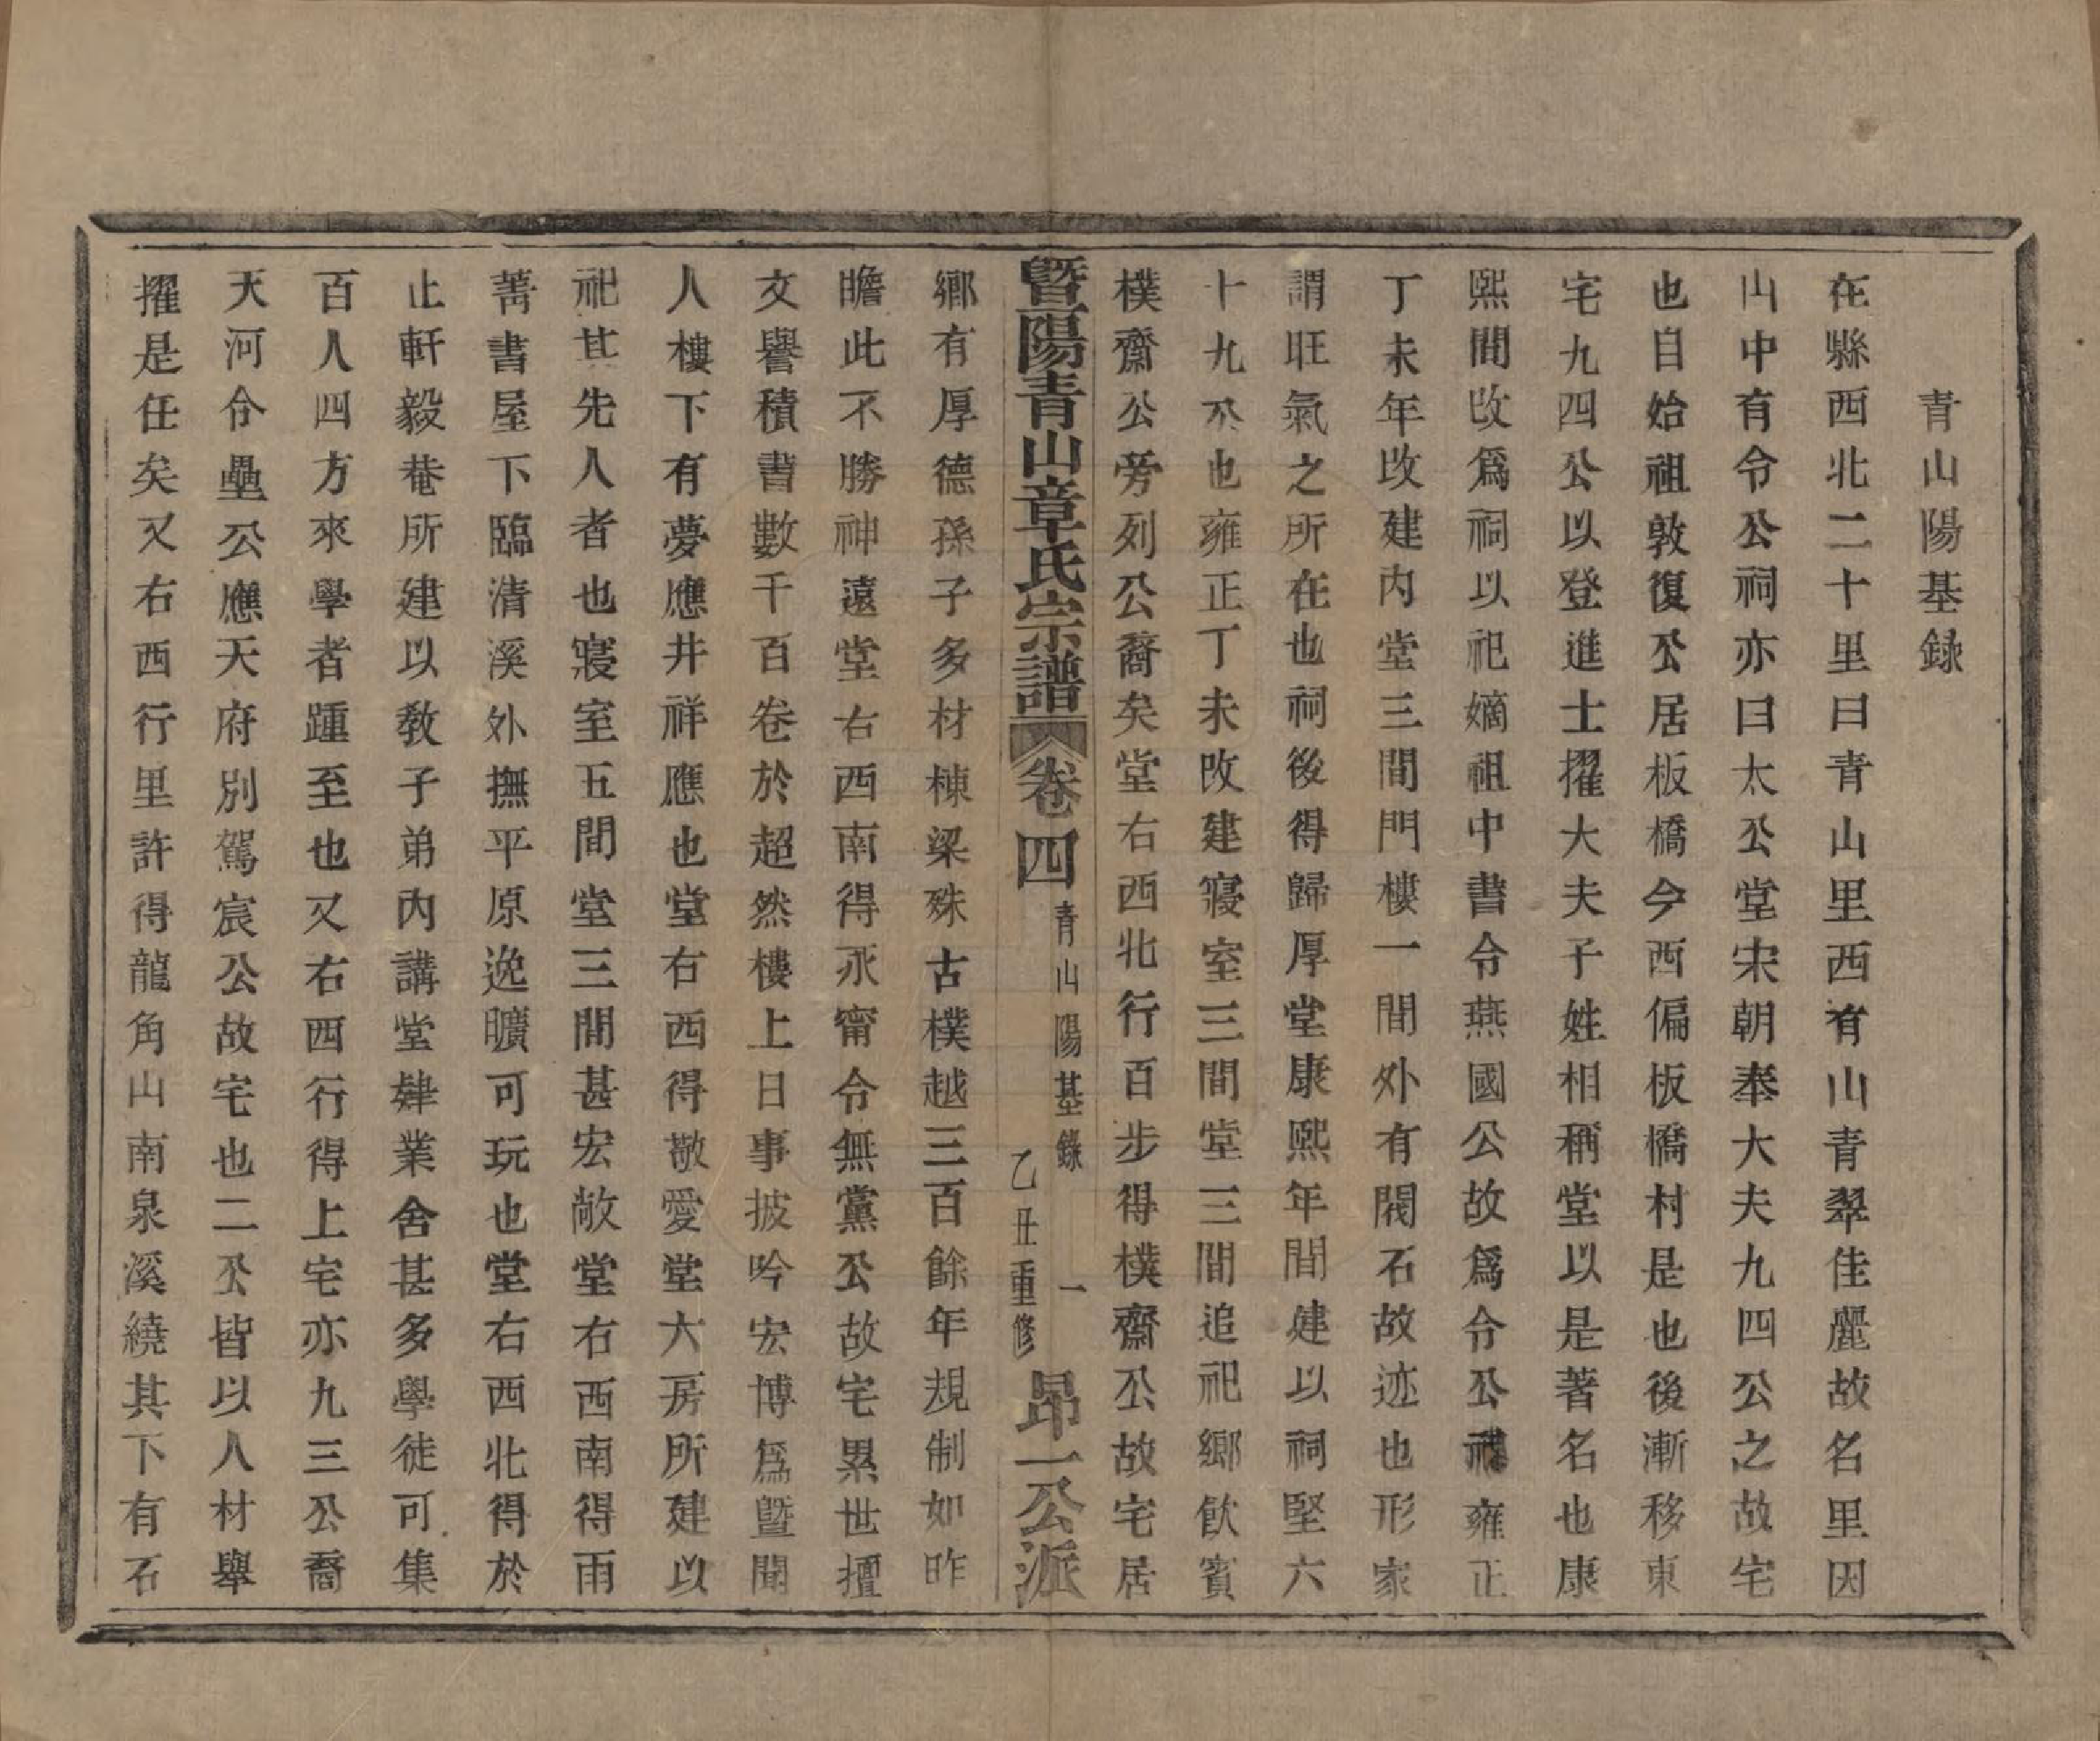 青山陽基録
在縣西北二十里曰青山里西有山青翠佳麗故名里因
山中有令公祠亦曰太公堂宋朝奉大夫九四公之故宅
也自始祖敦復公居板橋今西偏板橋村是也後漸移東
宅九四公以登進士擢大夫子姓相稱堂以是著名也康
熙間改爲祠以祀嫡祖中書令燕國公故爲令公祠雍正
丁未年改建內堂三間門樓一間外有閥石故迹也形家
謂旺氣之所在也祠後得歸厚堂康熙年間建以祠堅六
十九公也雍正丁未改建寢室三間堂三間追祀鄉飲賓
樸齋公旁列公裔矣堂右西北行百步得樸齋公故宅居
暨陽青山章氏宗譜 卷四 青山陽基錄 一 乙丑重修 昂一公派
鄉有厚德孫子多材棟梁殊古樸越三百餘年規制如昨
瞻此不勝神遠堂右西南得永甯令無黨公故宅累世擅
文譽積書數千百卷於超然樓上日事披吟宏博爲暨閣
人樓下有夢應井祥應也堂右西得敬愛堂六房所建以
祀其先人者也寢室五間堂三間甚宏敞堂右西南得雨
菁書屋下臨清溪外撫平原逸曠可玩也堂右西北得於
止軒毅菴所建以教子弟內講堂肄業舍甚多學徒可集
百人四方來學者踵至也又右西行得上宅亦九三公裔
天河令壘公應天府別駕宸公故宅也二公皆以人材舉
擢是任矣又右西行里許得龍角山南泉溪繞其下有石